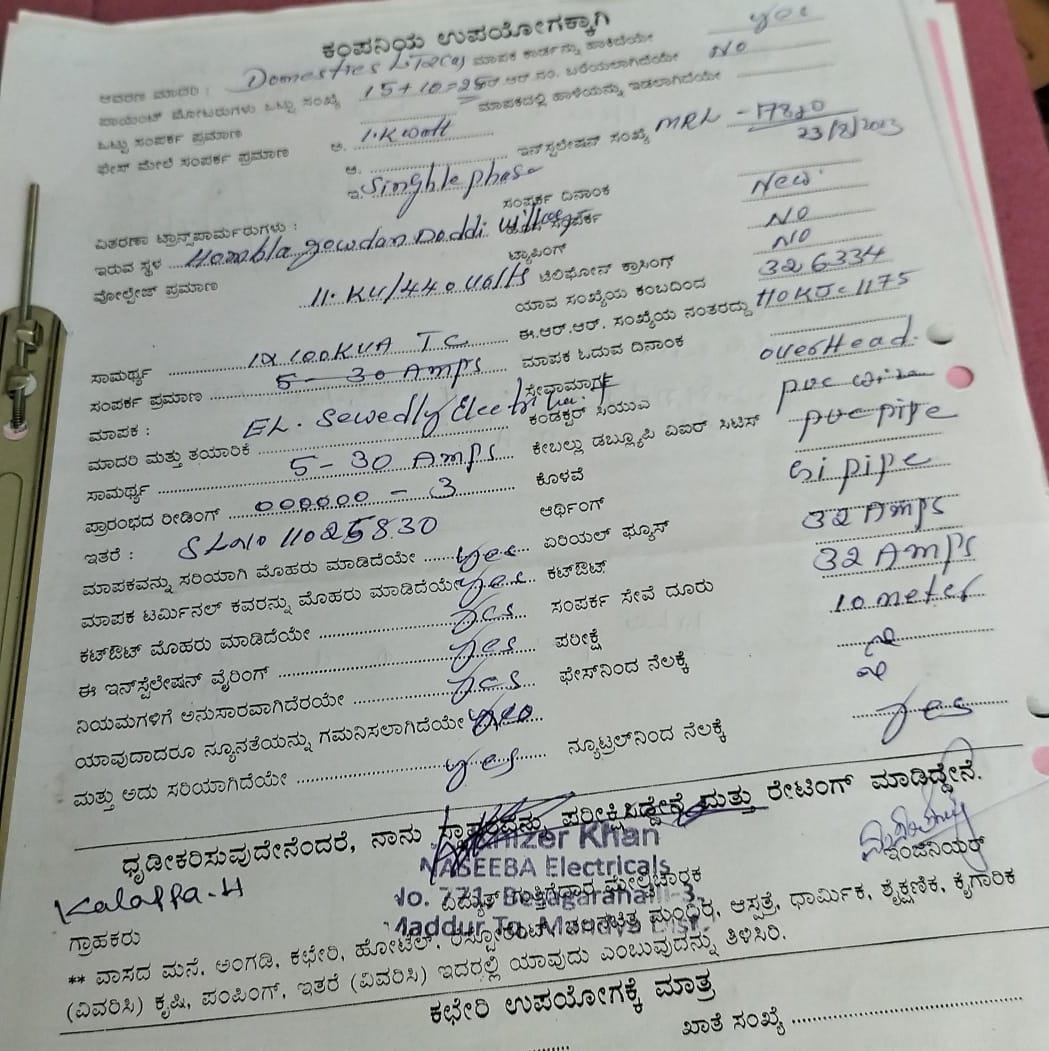 ಕಂಪನಿಯ ಉಪಯೋಗಕ್ಕಾಗಿ
ಆವರಣ ಮಾದರಿ : Domestics ಮಾಪಕ ಕಾರ್ಡನ್ನು ಹಾಕಿದೆಯೇ yes
ಪಾಯಿಂಟ್ ಮೋಟರುಗಳು ಒಟ್ಟು ಸಂಖ್ಯೆ 15+10=25 ಆರ್.ಆರ್ ನಂ. ಬರೆಯಲಾಗಿದೆಯೇ NO
ಒಟ್ಟು ಸಂಪರ್ಕ ಪ್ರಮಾಣ ಮಾಪಕದಲ್ಲಿ ಹಾಳೆಯನ್ನು ಇಡಲಾಗಿದೆಯೇ
ಫೇಸ್ ಮೇಲೆ ಸಂಪರ್ಕ ಪ್ರಮಾಣ ಅ. 1.Kwatt
ಆ. ಇನ್‌ಸ್ಟಲೇಷನ್ ಸಂಖ್ಯೆ MRL - 17820
ಇ. Singhle phase 23/8/2013
ವಿತರಣಾ ಟ್ರಾನ್ಸ್‌ಪಾರ್ಮರುಗಳು : ಸಂಪರ್ಕ ದಿನಾಂಕ New
ಇರುವ ಸ್ಥಳ Hombla gowdan Doddi village ಸಂಪರ್ಕ NO
ವೋಲ್ಟೇಜ್ ಪ್ರಮಾಣ 11.KV/440 Volts ಟ್ಯಾಪಿಂಗ್ NO
ಟೆಲಿಫೋನ್ ಕ್ರಾಸಿಂಗ್ 326334
ಯಾವ ಸಂಖ್ಯೆಯ ಕಂಬದಿಂದ
ಸಾಮರ್ಥ್ಯ 1X100KVA T.C ಈ.ಆರ್.ಆರ್. ಸಂಖ್ಯೆಯ ನಂತರದ್ದು
ಸಂಪರ್ಕ ಪ್ರಮಾಣ 5-30 Amps ಮಾಪಕ ಓದುವ ದಿನಾಂಕ
ಮಾಪಕ : ಸೇವಾಮಾರ್ಗ overHead
ಮಾದರಿ ಮತ್ತು ತಯಾರಿಕೆ EL. Sewedly Electri ಕಂಡಕ್ಟರ್ ಸಿಯುಎ
ಸಾಮರ್ಥ್ಯ 5-30 Amps ಕೇಬಲ್ಲು ಡಬ್ಲ್ಯೂಪಿ ವಿಎರ್ ಸಿಟಿಸ್ pvc wire
ಪ್ರಾರಂಭದ ರೀಡಿಂಗ್ 000000 - 3 ಕೊಳವೆ pvc pipe
ಇತರೆ : SLNO 11025830 ಆರ್ಥಿಂಗ್ Gi pipe
ಮಾಪಕವನ್ನು ಸರಿಯಾಗಿ ಮೊಹರು ಮಾಡಿದೆಯೇ yes ಏರಿಯಲ್ ಫ್ಯೂಸ್ 32 Amps
ಮಾಪಕ ಟರ್ಮಿನಲ್ ಕವರನ್ನು ಮೊಹರು ಮಾಡಿದೆಯೇ yes ಕಟ್‌ಔಟ್ 32 Amps
ಕಟ್‌ಔಟ್ ಮೊಹರು ಮಾಡಿದೆಯೇ yes ಸಂಪರ್ಕ ಸೇವೆ ದೂರು 10 meter
ಈ ಇನ್‌ಸ್ಟೆಲೇಷನ್ ವೈರಿಂಗ್ yes ಪರೀಕ್ಷೆ
ನಿಯಮಗಳಿಗೆ ಅನುಸಾರವಾಗಿದೆರಯೇ yes ಫೇಸ್‌ನಿಂದ ನೆಲಕ್ಕೆ
ಯಾವುದಾದರೂ ನ್ಯೂನತೆಯನ್ನು ಗಮನಿಸಲಾಗಿದೆಯೇ
ಮತ್ತು ಅದು ಸರಿಯಾಗಿದೆಯೇ yes ನ್ಯೂಟ್ರಲ್‌ನಿಂದ ನೆಲಕ್ಕೆ yes
ಧೃಡೀಕರಿಸುವುದೇನೆಂದರೆ, ನಾನು ಸ್ಥಾವರವನ್ನು ಪರೀಕ್ಷಿಸಿದ್ದೇನೆ ಮತ್ತು ರೇಟಿಂಗ್ ಮಾಡಿದ್ದೇನೆ.
Khan
NASEEBA Electricals
ಇಂಜಿನಿಯರ್
Kalappa-H
ವಿದ್ಯುತ್ ಗುತ್ತಿಗೆದಾರ ಮೇಲ್ವಿಚಾರಕ
ಗ್ರಾಹಕರು
Maddur Tq, Mandya Dist.
** ವಾಸದ ಮನೆ, ಅಂಗಡಿ, ಕಛೇರಿ, ಹೋಟೆಲ್, ರೆಸ್ಟೋರೆಂಟ್, ಚಲನಚಿತ್ರ ಮಂದಿರ, ಆಸ್ಪತ್ರೆ, ಧಾರ್ಮಿಕ, ಶೈಕ್ಷಣಿಕ, ಕೈಗಾರಿಕ
(ವಿವರಿಸಿ) ಕೃಷಿ, ಪಂಪಿಂಗ್, ಇತರೆ (ವಿವರಿಸಿ) ಇದರಲ್ಲಿ ಯಾವುದು ಎಂಬುವುದನ್ನು ತಿಳಿಸಿರಿ.
ಕಛೇರಿ ಉಪಯೋಗಕ್ಕೆ ಮಾತ್ರ
ಖಾತೆ ಸಂಖ್ಯೆ